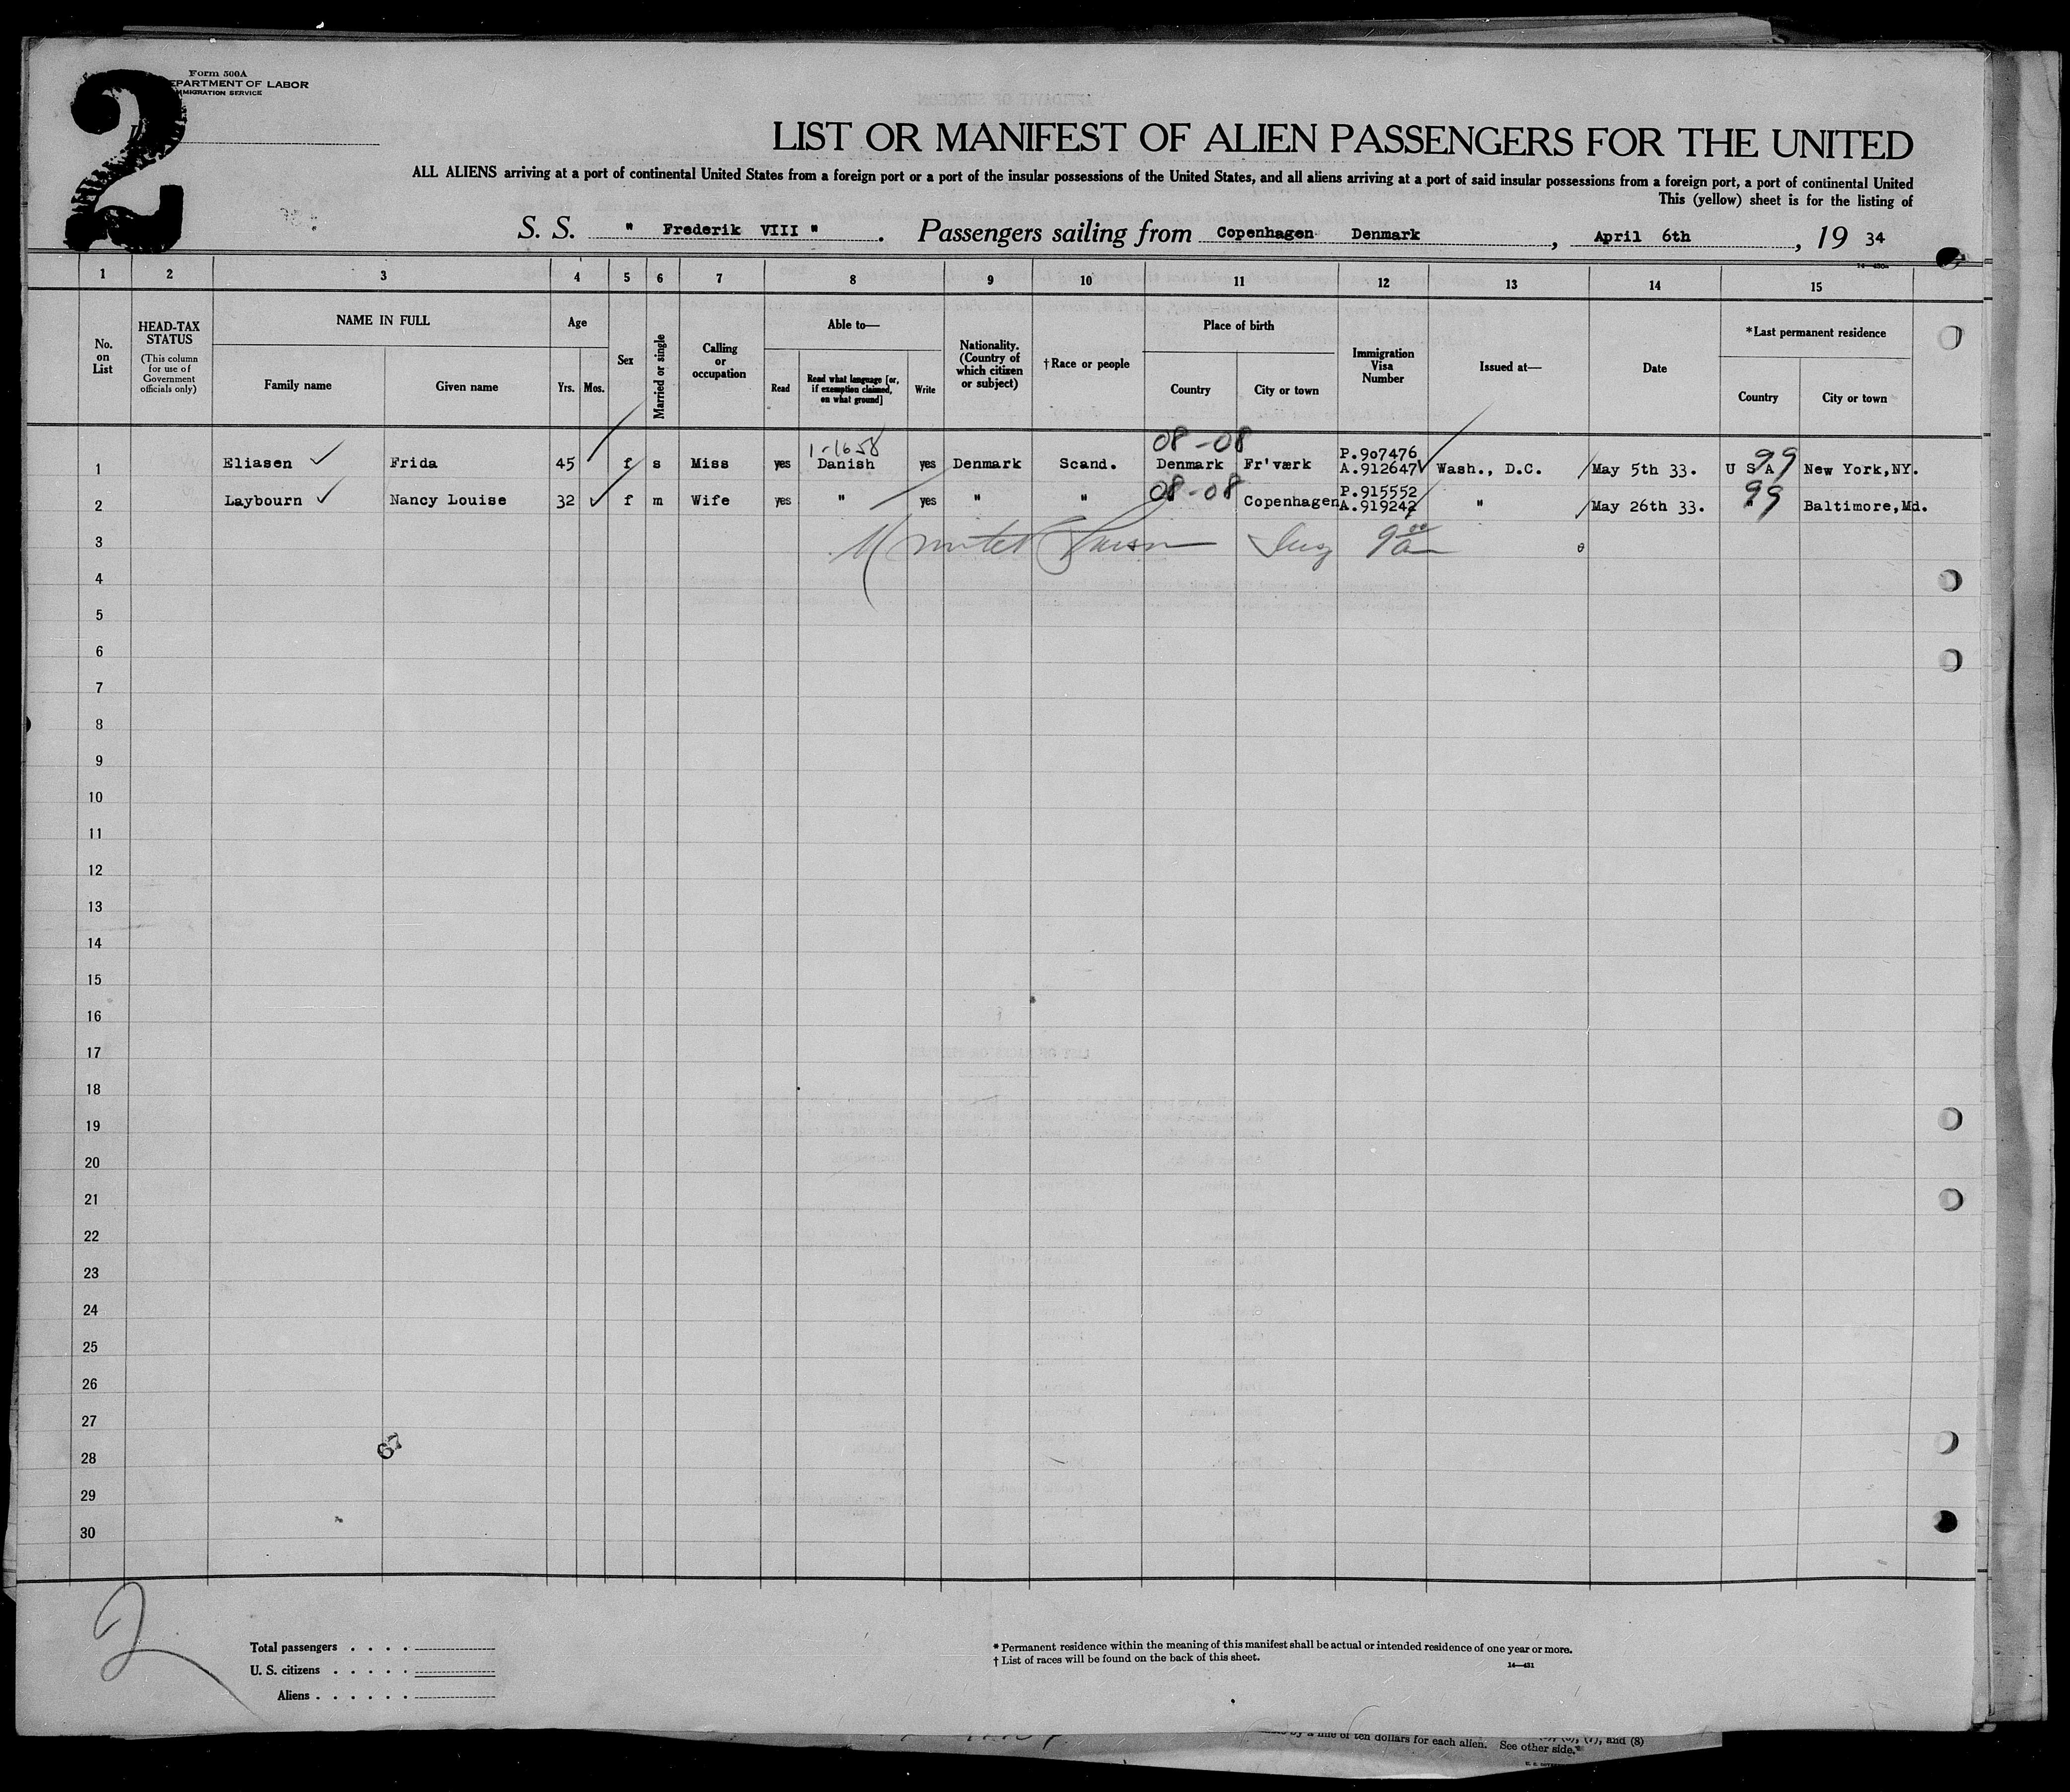 2
Form 500A
DEPARTMENT OF LABOR
IMMIGRATION SERVICE
LIST OR MANIFEST OF ALIEN PASSENGERS FOR THE UNITED
ALL ALIENS arriving at a port of continental United States from a foreign port or a port of the insular possessions of the United States, and all aliens arriving at a port of said insular possessions from a foreign port, a port of continental United
This (yellow) sheet is for the listing of
S. S. " Frederik VIII " . Passengers sailing from Copenhagen Denmark , April 6th , 19 34
1 2 3 4 5 6 7 8 9 10 11 12 13 14 15
No. on List
HEAD-TAX STATUS
(This column for use of Government officials only)
NAME IN FULL
Family name Given name
Age
Yrs. Mos.
Sex
Married or single
Calling or occupation
Able to—
Read
Read what language [or, if exemption claimed, on what ground]
Write
Nationality. (Country of which citizen or subject)
†Race or people
Place of birth
Country City or town
Immigration Visa Number
Issued at—
Date
*Last permanent residence
Country City or town
1-1658 08-08 P.907476 99
1 Eliasen Frida 45 f s Miss yes Danish yes Denmark Scand. Denmark Fr'værk A.912647 Wash., D.C. May 5th 33. U S A New York,NY.
08-08 P.915552 99
2 Laybourn Nancy Louise 32 f m Wife yes " yes " " " Copenhagen A.919242 " May 26th 33. " Baltimore,Md.
3
4
5
6
7
8
9
10
11
12
13
14
15
16
17
18
19
20
21
22
23
24
25
26
27
28
29
30
67
2
Total passengers . . . .
U. S. citizens . . . . .
Aliens . . . . . .
* Permanent residence within the meaning of this manifest shall be actual or intended residence of one year or more.
† List of races will be found on the back of this sheet.
14—431
by a fine of ten dollars for each alien. See other side.
(7), and (8)